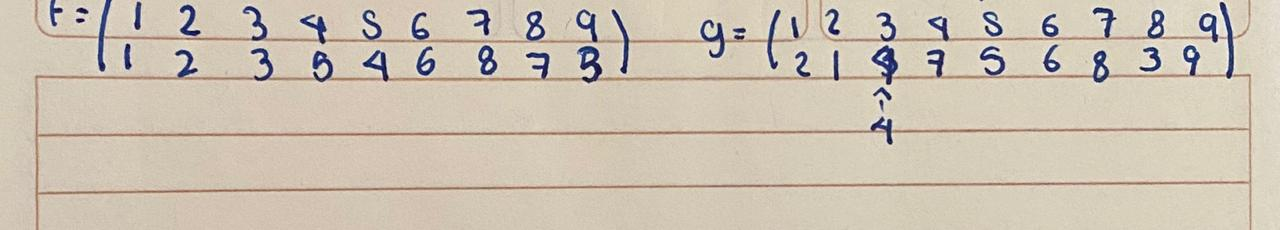 f = ( 1 2 3 4 5 6 7 8 9 ) g = ( 1 2 3 4 5 6 7 8 9 )
( 1 2 3 5 4 6 8 7 3 ) ( 2 1 4 7 5 6 8 3 9 )
4